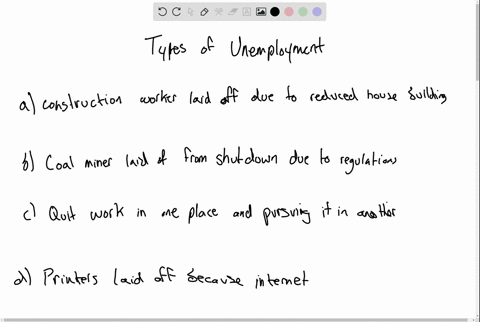 Types of Unemployment
a) construction worker laid off due to reduced house building
b) Coal miner laid of from shutdown due to regulation
c) Quit work in one place and pursuing it in another
d) Printers laid off because internet